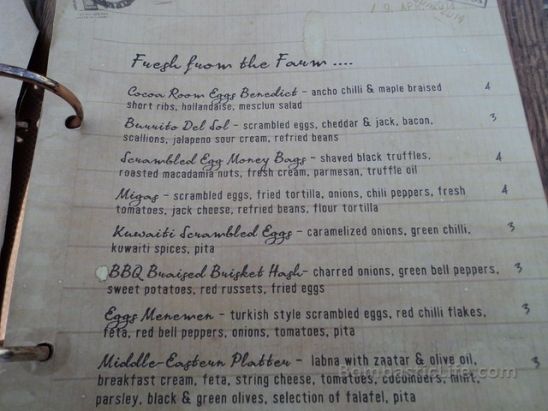 Fresh from the Farm ....
Cocoa Room Eggs Benedict - ancho chilli & maple braised 4
short ribs, hollandaise, mesclun salad
Burrito Del Sol - scrambled eggs, cheddar & jack, bacon, 3
scallions, jalapeno sour cream, refried beans
Scrambled Egg Money Bags - shaved black truffles, 4
roasted macadamia nuts, fresh cream, parmesan, truffle oil
Migas - scrambled eggs, fried tortilla, onions, chili peppers, fresh 4
tomatoes, jack cheese, refried beans, flour tortilla
Kuwaiti Scrambled Eggs - caramelized onions, green chilli, 3
kuwaiti spices, pita
BBQ Braised Brisket Hash- charred onions, green bell peppers, 3
sweet potatoes, red russets, fried eggs
Eggs Menemen - turkish style scrambled eggs, red chilli flakes, 3
feta, red bell peppers, onions, tomatoes, pita
Middle-Eastern Platter - labna with zaatar & olive oil, 3
breakfast cream, feta, string cheese, tomatoes, cucumbers, mint,
parsley, black & green olives, selection of falafel, pita
BombasticLife.com